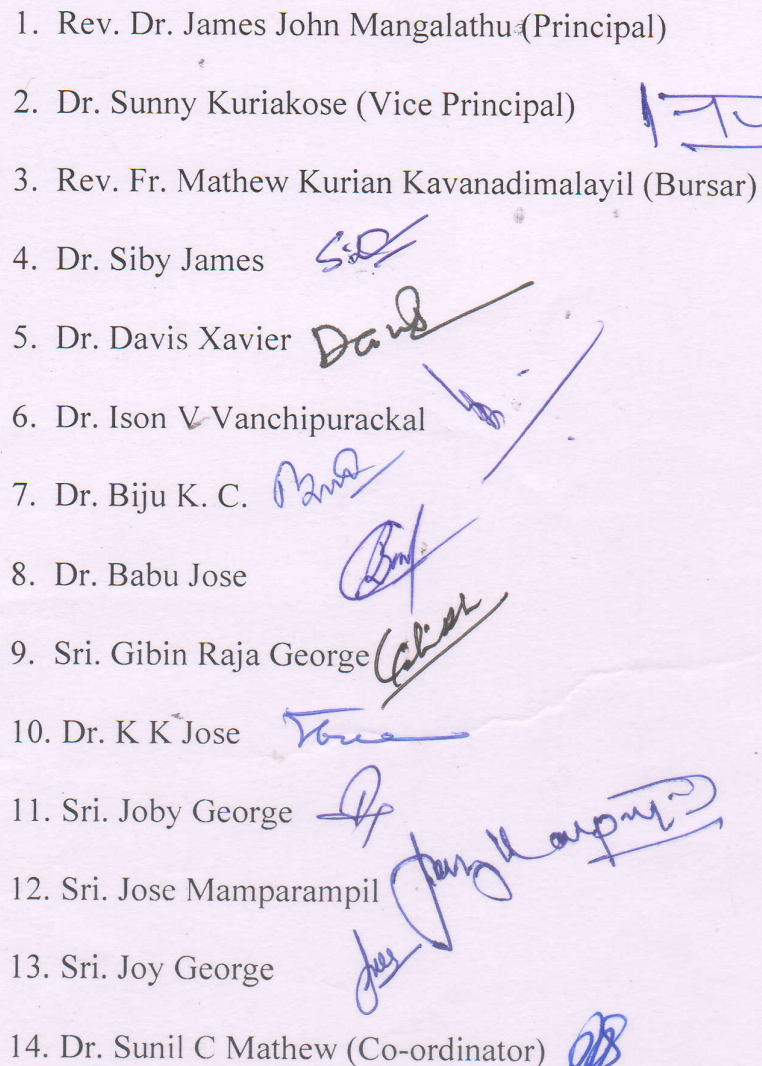 1. Rev. Dr. James John Mangalathu (Principal)
2. Dr. Sunny Kuriakose (Vice Principal)
3. Rev. Fr. Mathew Kurian Kavanadimalayil (Bursar)
4. Dr. Siby James
5. Dr. Davis Xavier Davis
6. Dr. Ison V Vanchipurackal
7. Dr. Biju K. C.
8. Dr. Babu Jose
9. Sri. Gibin Raja George
10. Dr. K K Jose
11. Sri. Joby George
12. Sri. Jose Mamparampil
13. Sri. Joy George
14. Dr. Sunil C Mathew (Co-ordinator)